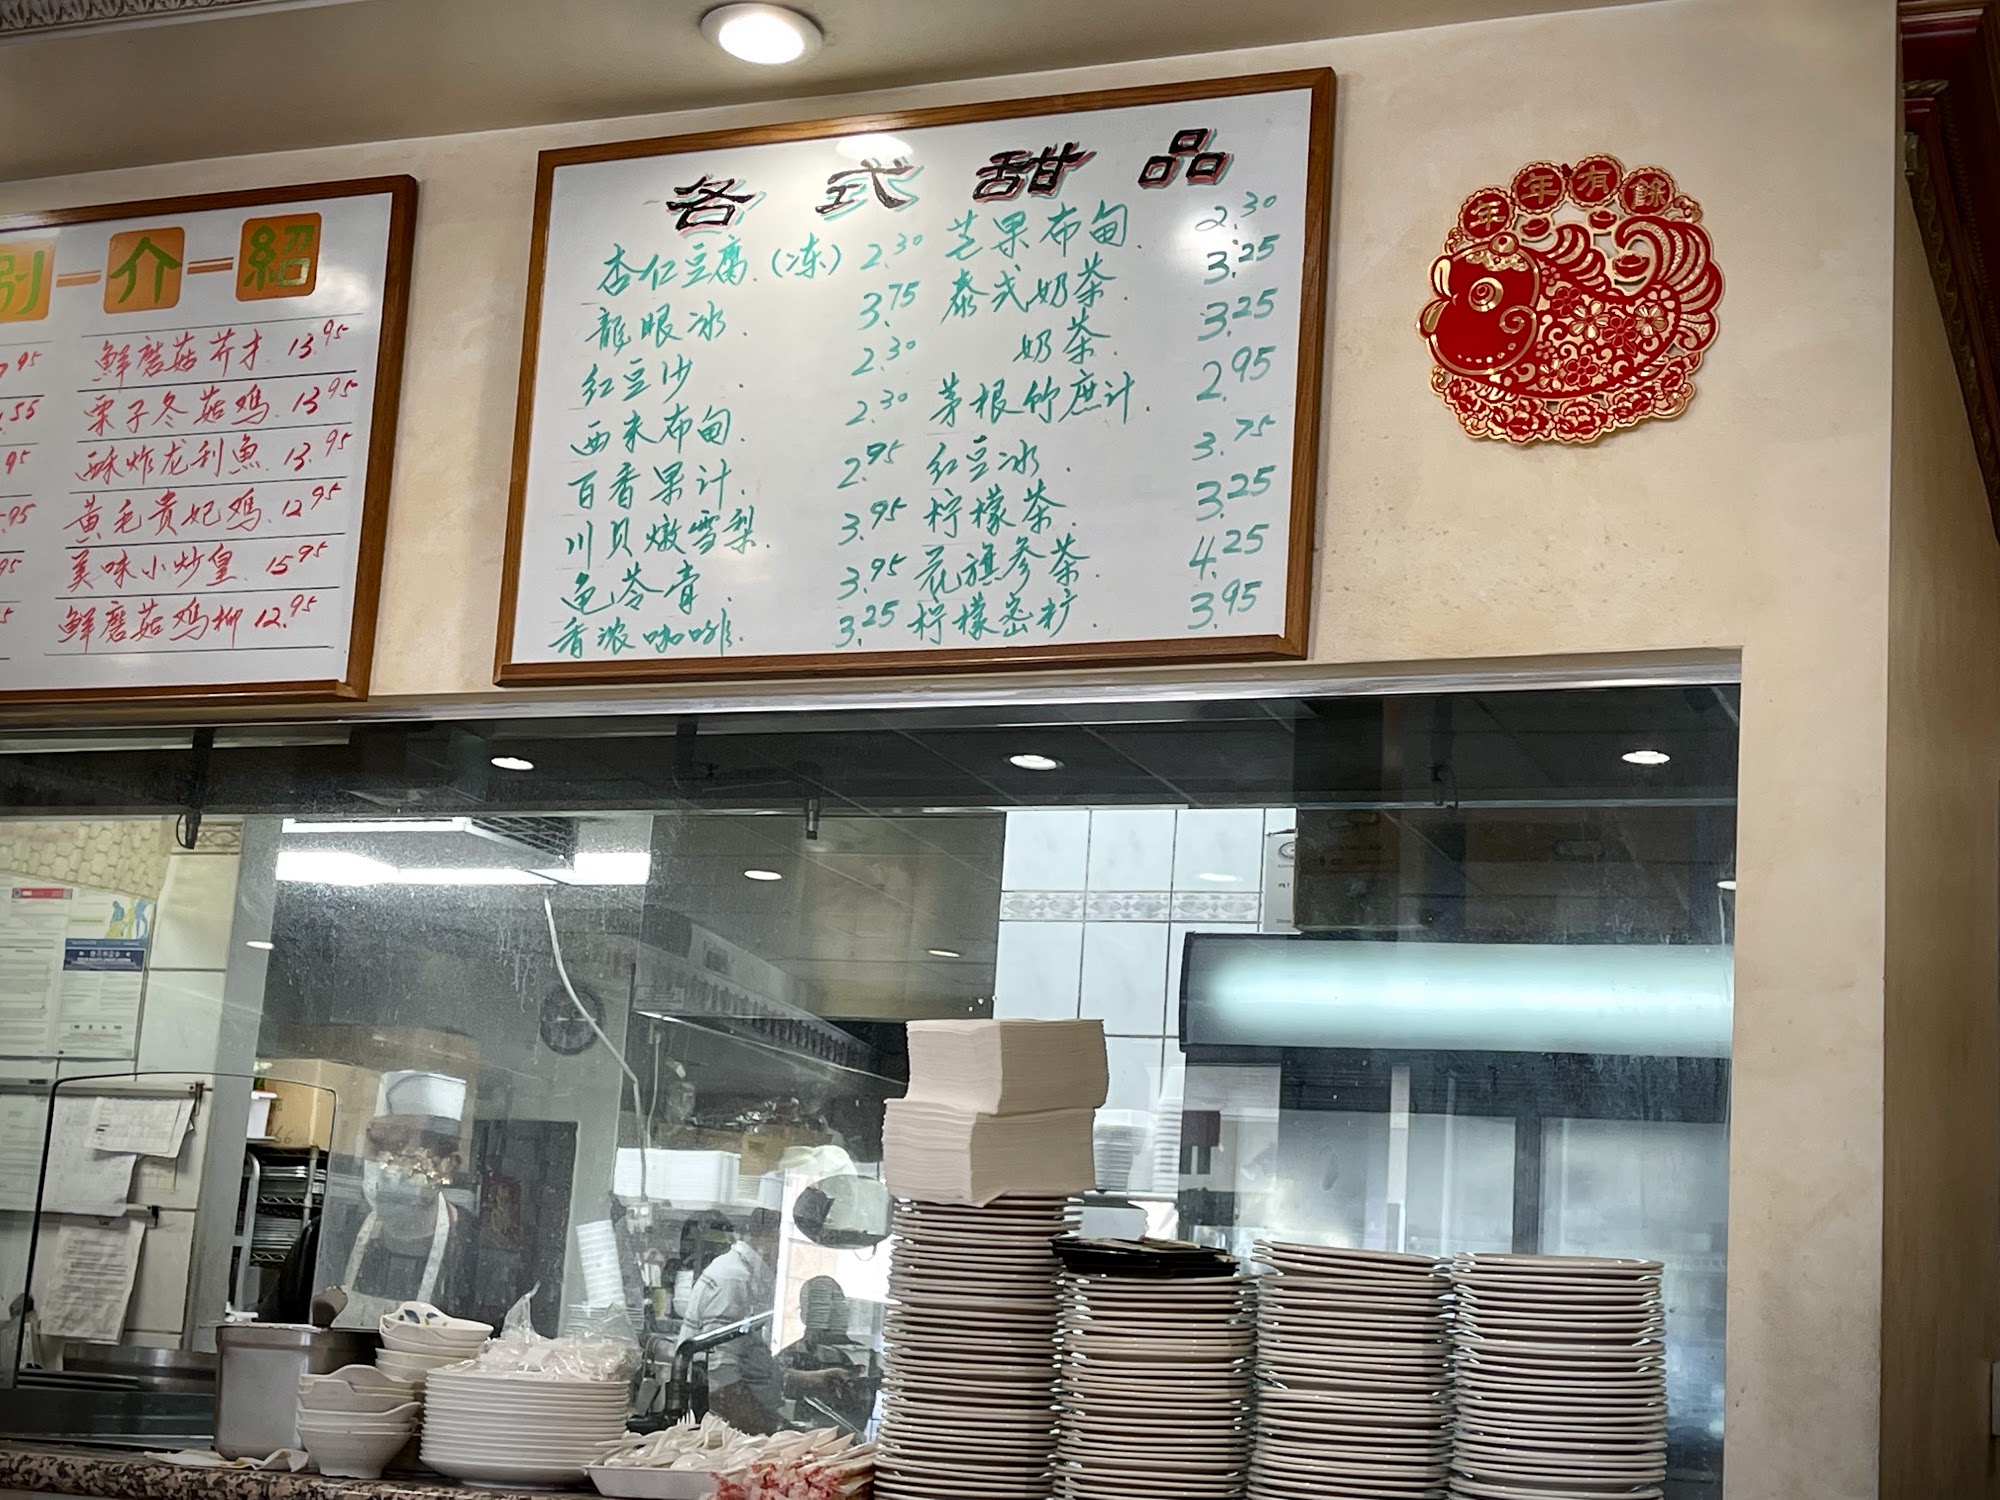 别一介一紹
7.95 鮮蘑菇芥才. 13.95
.55 栗子冬菇鸡. 13.95
95 酥炸龙利魚. 13.95
.95 黄毛贵妃鸡. 12.95
95 美味小炒皇. 15.95
5 鮮蘑菇鸡柳 12.95
各式甜品
杏仁豆腐.(冻) 2.30
龍眼冰. 3.75
红豆沙. 2.30
西米布甸. 2.30
百香果汁. 2.95
川贝燉雪梨. 3.95
龟苓膏. 3.95
香浓咖啡. 3.25
芒果布甸. 2.30
泰式奶茶. 3.25
奶茶. 3.25
茅根竹蔗汁. 2.95
红豆冰. 3.75
柠檬茶. 3.25
花旗参茶. 4.25
柠檬密. 3.95
年年有餘